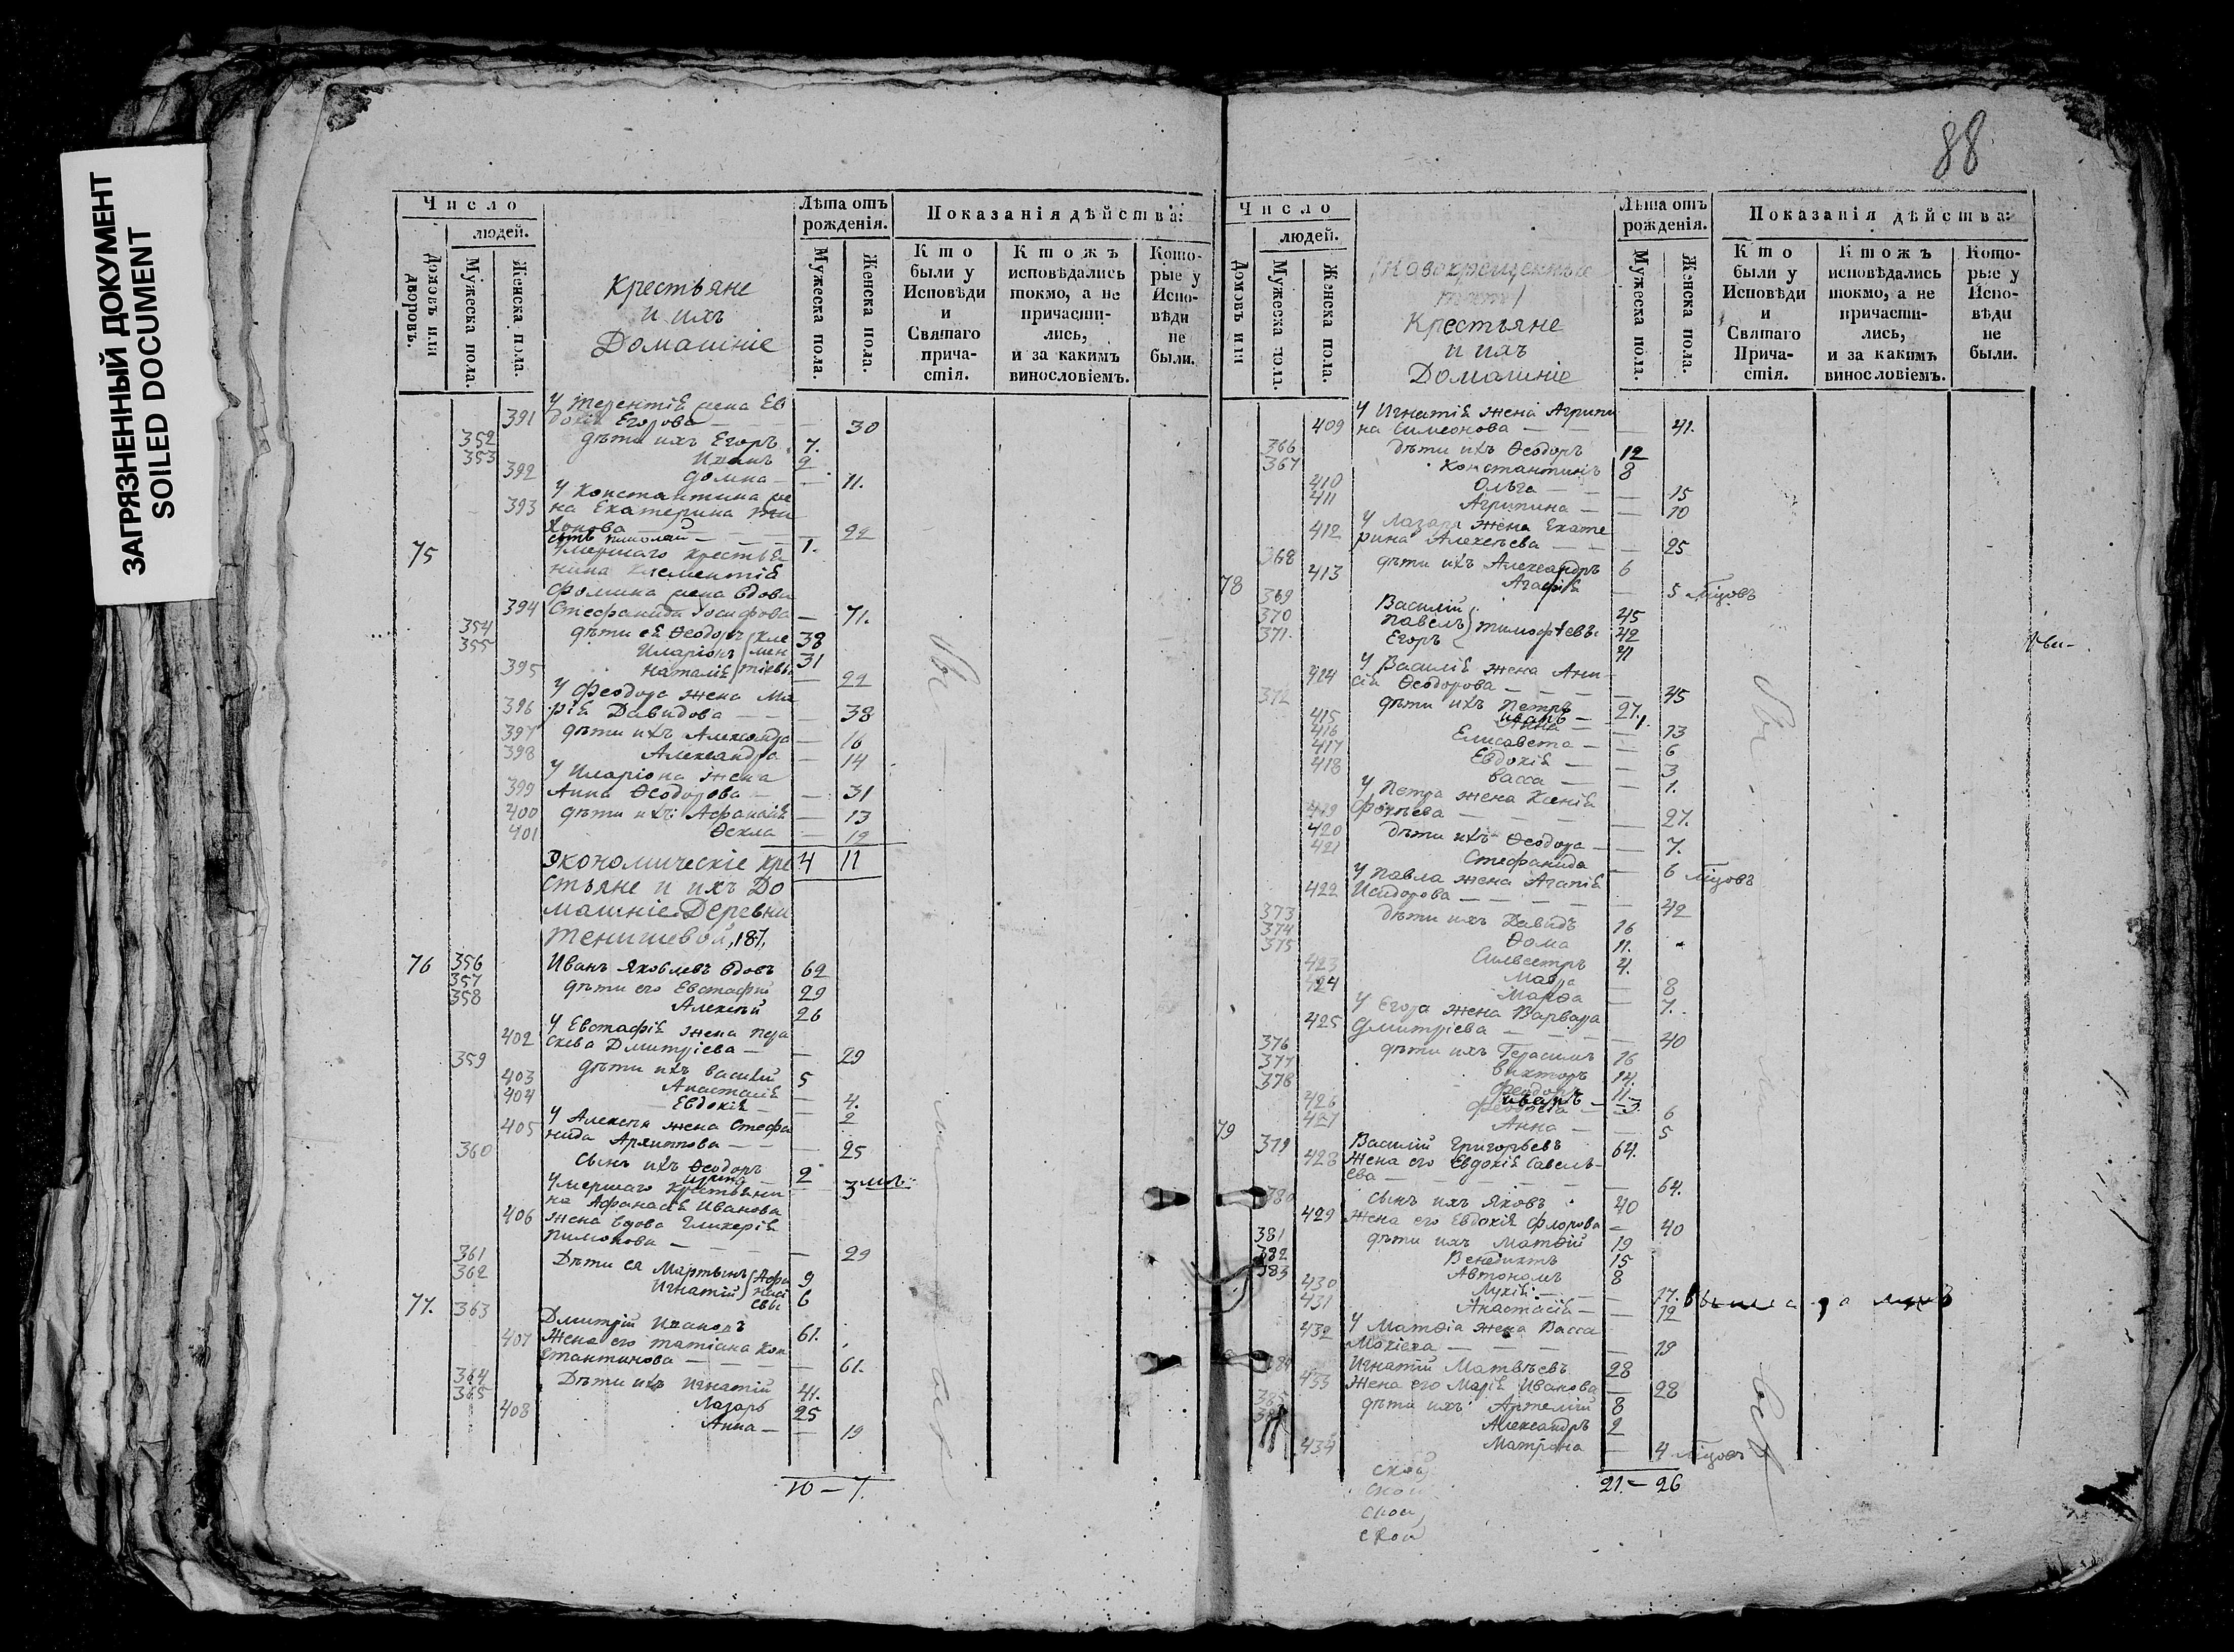 ЗАГРЯЗНЕННЫЙ ДОКУМЕНТ
SOILED DOCUMENT
88
Число
людей.
Домовъ или дворовъ.
Мужеска пола.
Женска пола.
Крестьяне
и ихъ
Домашніе
Лѣта отъ
рожденія.
Мужеска пола.
Женска пола.
Показанія дѣйства:
Кто
были у
Исповѣди
и
Святаго
прича-
стія.
Ктожъ
исповѣдались
токмо, а не
причасти-
лись,
и за какимъ
винословіемъ.
Кото-
рые у
Испо-
вѣди
не
были.
391 У Терентія жена Ев
докія Егорова — 30
352 дѣти ихъ Егоръ 7.
353 Иванъ 2
392 Домна — 11.
У Константина же
393 на Екатерина Ти
хонова — 22
сынъ Николай — 1.
75 Умершаго крестья
нина Клементія
Фомина жена вдова
394 Стефанида Іосифова — 71.
354 дѣти ея Ѳеодоръ Кле 38
355 Иларіонъ мен 31
395 Наталія тіевы — 22
У Феодора жена Ма
396 рія Давидова — 38
397 дѣти ихъ Александра — 16
398 Александра — 14
У Иларіона жена
399 Анна Ѳеодорова — 31
400 дѣти ихъ: Афанасія — 13
401 Ѳекла — 12
Экономическіе кре 4 11
стьяне и ихъ До
машніе Деревни
Тенишевой, 187,
76 356 Иванъ Яковлевъ вдовъ 62
357 дѣти его Евстафій 29
358 Алексѣй 26
У Евстафія жена Пра
402 скева Дмитріева — 29
359 дѣти ихъ Василій 5
403 Анастасія — 4.
404 Евдокія — 2
У Алексѣя жена Стефа
405 нида Архиппова — 25
360 сынъ ихъ Ѳеодоръ 2
Умершаго крестьяни 3
на Афанасія Иванова
406 жена вдова Гликерія
Пимонова — 29
361 Дѣти ея Мартынъ Афа 9
362 Игнатій насі 6
евы
77. 363 Дмитрій Ивановъ 61.
407 жена его Татіана Кон
стантинова — 61.
364 Дѣти ихъ Игнатій 41.
365 Лазарь 25
408 Анна — 19
10 — 7.
Число
людей.
Домовъ или
Мужеска пола.
Женска пола.
Новокрещенные
Крестьяне
и ихъ
Домашніе
Лѣта отъ
рожденія.
Мужеска пола.
Женска пола.
Показанія дѣйства:
Кто
были у
Исповѣди
и
Святаго
Прича-
стія.
Ктожъ
исповѣдались
токмо, а не
причасти-
лись,
и за какимъ
винословіемъ.
Кото-
рые у
Испо-
вѣди
не
были.
У Игнатія жена Агрипи
409 на Симеонова — 41.
366 дѣти ихъ Ѳеодоръ 12
367 Константинъ 8
410 Ольга — 15
411 Агрипина — 10
У Лазаря жена Екате
412 рина Алексѣева — 25
368 дѣти ихъ Александръ 6
413 Агафія — 5
78 369 Василій 45
370 Павелъ Тимофѣевы 42
371. Егоръ 41
У Василія жена Ани
414 сія Ѳеодорова — 45
372 дѣти ихъ Петръ 27.
Иванъ — 1.
415 Анна — 13
416 Елисавета — 6
417 Евдокія — 3
418 Васса — 1.
У Петра жена Ксенія
419 Фотѣева — 27.
420 дѣти ихъ Ѳеодора — 7.
421 Стефанида — 6
У Павла жена Агапія
422 Исидорова — 42
373 дѣти ихъ Давидъ 16
374 Ѳома 11.
375 Силвестръ 4.
423 Мавра — 8
424 Марѳа — 7.
У Егора жена Варвара
425 Дмитріева — 40
376 дѣти ихъ Герасимъ 16
377 Викторъ 14.
378 Феодоръ 11.
Иванъ — 3.
426 — 6
427 Анна — 5
79 379 Василій Григорьевъ 64.
428 жена его Евдокія Савелъ-
ева — 64.
380 сынъ ихъ Яковъ 40
429 жена его Евдокія Флорова — 40
381 дѣти ихъ Матѳій 19
382 Венедиктъ 15
383 Автономъ 8
430 Лукія — 17.
431 Анастасія — 12
432 У Матѳіа жена Васса
Мокіева — 19
384 Игнатій Матвѣевъ 28
433 жена его Марія Иванова — 28
385 дѣти ихъ Артемій 8
Александръ 2
434 Матрона — 4
21. — 26
ской
ской
ской
ской